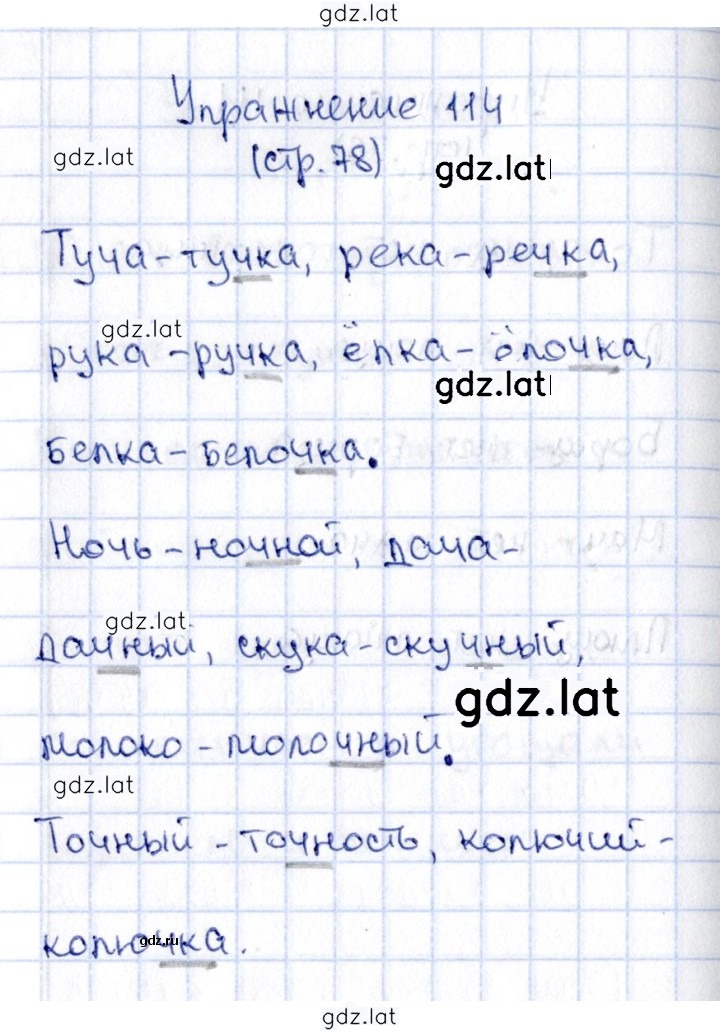 gdz.lat
Упражнение 114
gdz.lat
(стр. 78)
gdz.lat
Туча - тучка, река - речка,
gdz.lat
рука - ручка, ёлка - ёлочка,
gdz.lat
белка - белочка.
Ночь - ночной, дача -
gdz.lat
дачный, скука - скучный,
gdz.lat
молоко - молочный.
gdz.lat
Точный - точность, колючий -
колючка.
gdz.ru
gdz.lat